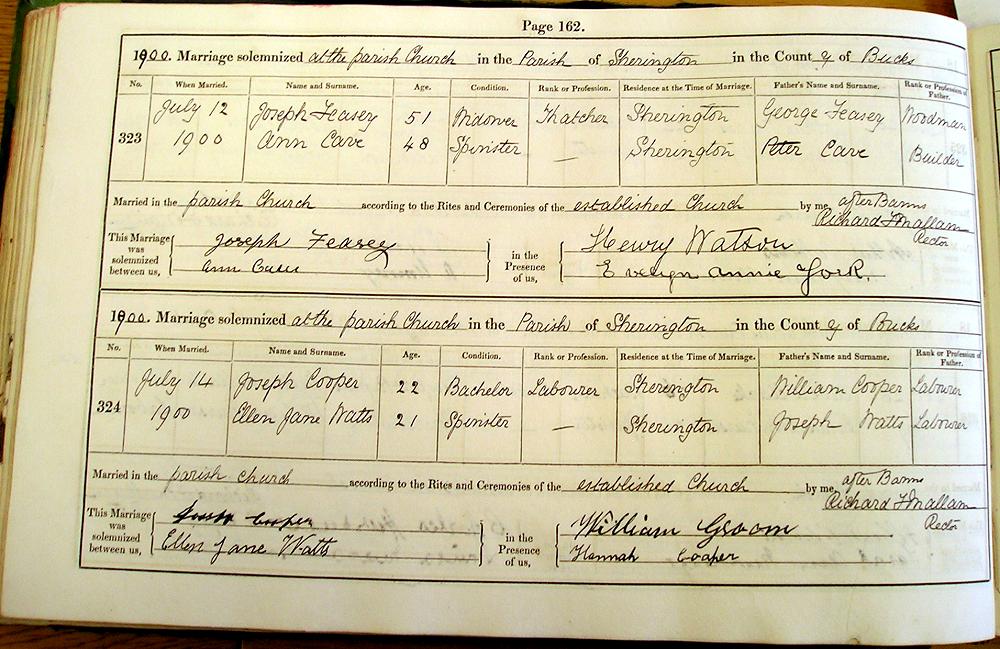 Page 162.
1900. Marriage solemnized at the parish Church in the Parish of Sherington in the County of Bucks
No. When Married. Name and Surname. Age. Condition. Rank or Profession. Residence at the Time of Marriage. Father's Name and Surname. Rank or Profession of Father.
July 12 Joseph Feasey 51 Widower Thatcher Sherington George Feasey Woodman
323 1900 Ann Cave 48 Spinster — Sherington Peter Cave Builder
Married in the parish Church according to the Rites and Ceremonies of the established Church by me, after Banns
Richard F Mallam
Rector
This Marriage was solemnized between us, Joseph Feasey in the Presence of us, Henry Watson
Ann Cave Evelyn Annie York.
1900. Marriage solemnized at the parish Church in the Parish of Sherington in the County of Bucks
No. When Married. Name and Surname. Age. Condition. Rank or Profession. Residence at the Time of Marriage. Father's Name and Surname. Rank or Profession of Father.
July 14 Joseph Cooper 22 Bachelor Labourer Sherington William Cooper Labourer
324 1900 Ellen Jane Watts 21 Spinster — Sherington Joseph Watts Labourer
Married in the parish church according to the Rites and Ceremonies of the established Church by me, after Banns
Richard F Mallam
Rector
This Marriage was solemnized between us, Cooper in the Presence of us, William Groom
Ellen Jane Watts Hannah Cooper